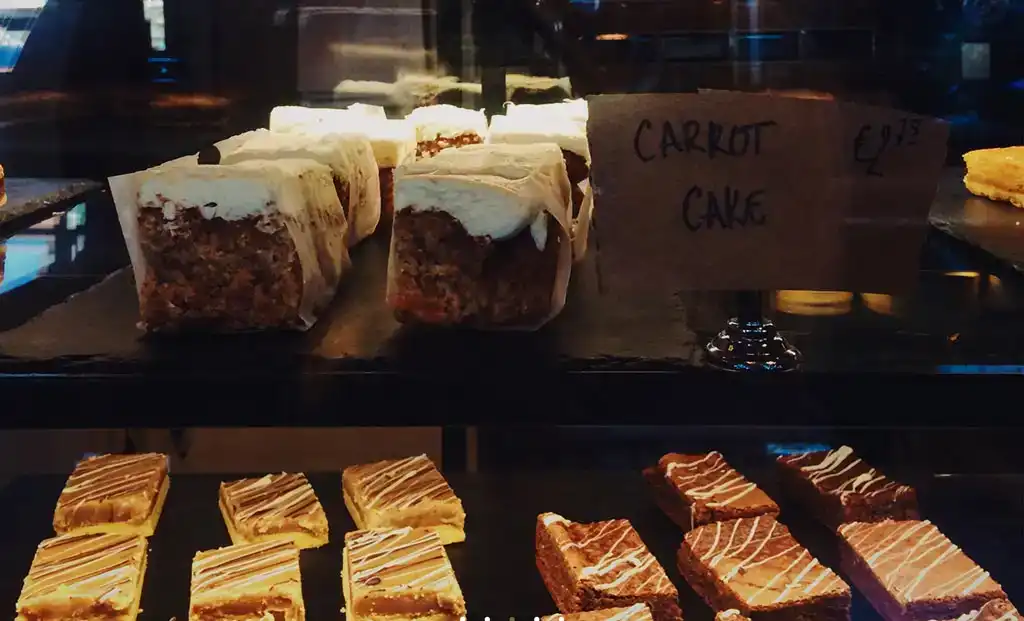 CARROT
CAKE
£2.75